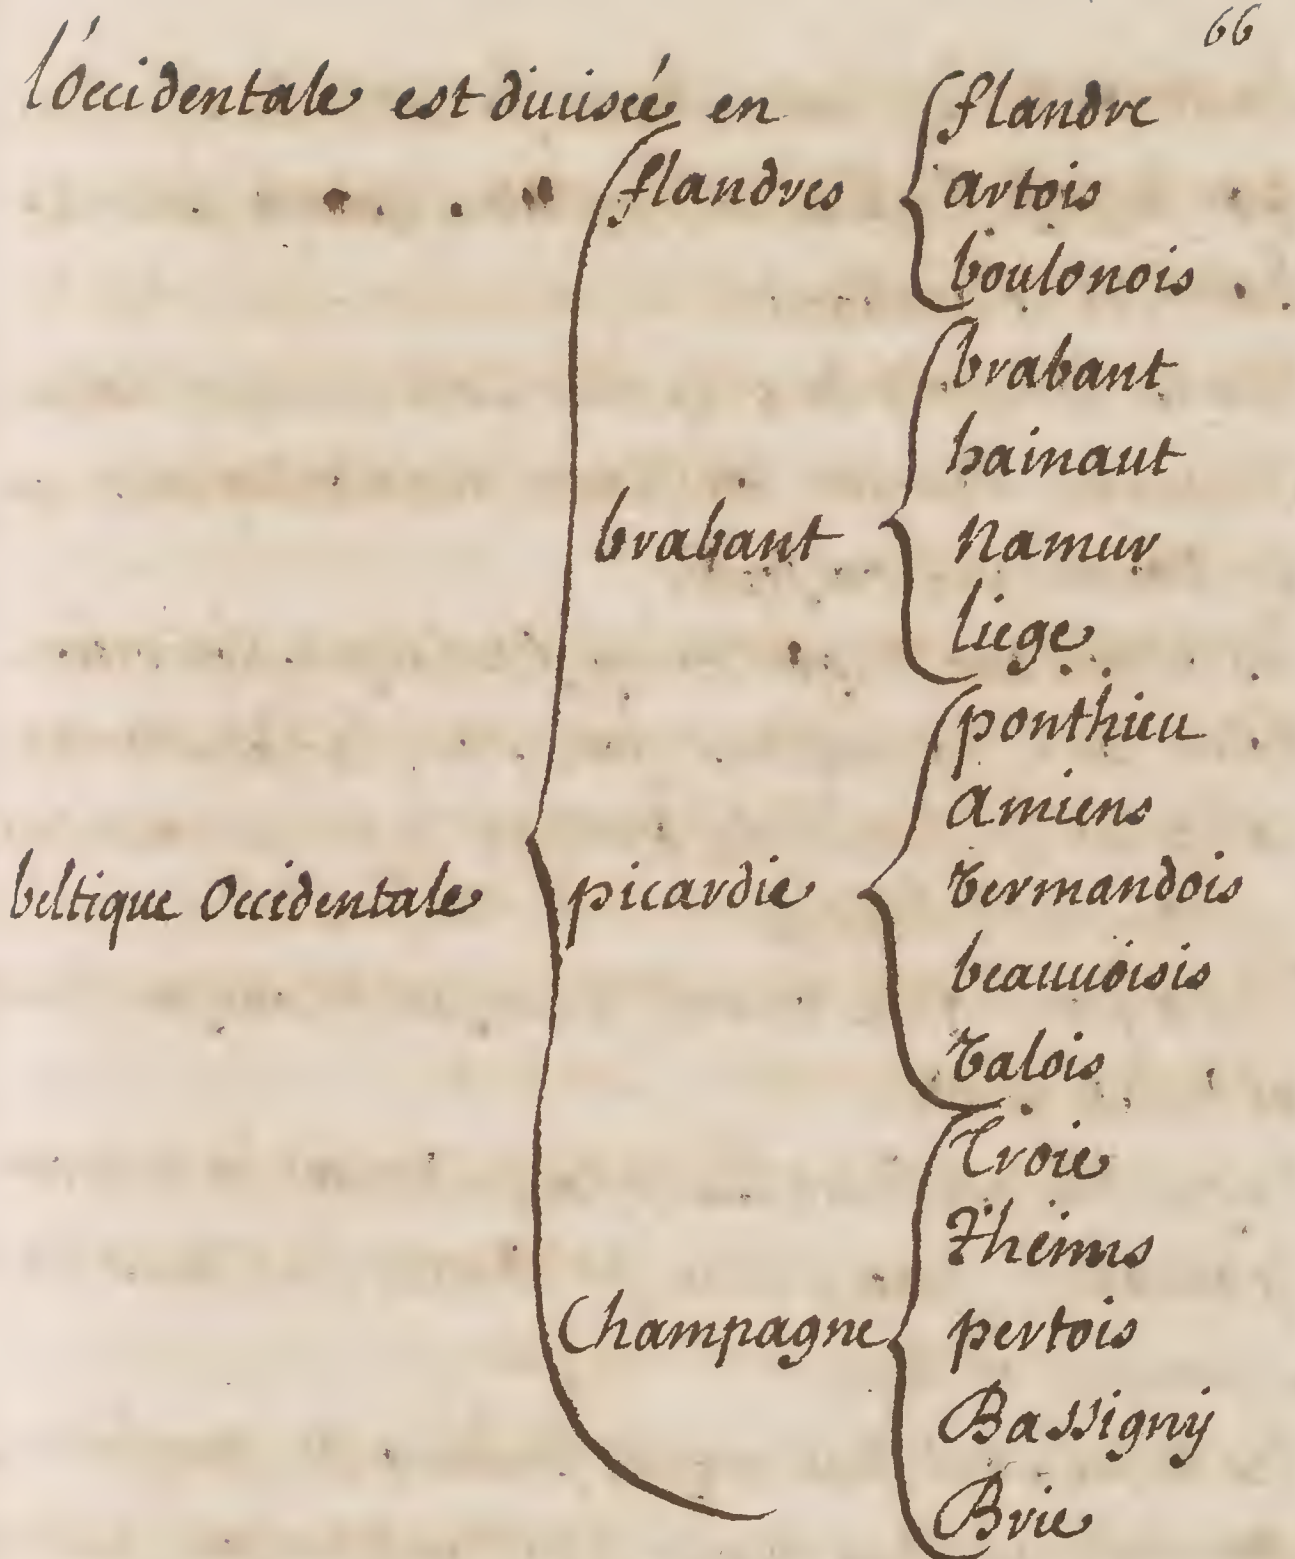 66
l'Occidentale est diuisée en
flandres
flandre
artois
boulonois
brabant
brabant
hainaut
Namur
liege
beltique Occidentale
picardie
ponthieu
amiens
Vermandois
beauuoisis
Valois
Champagne
Troie
Rheims
pertois
Bassigny
Brie